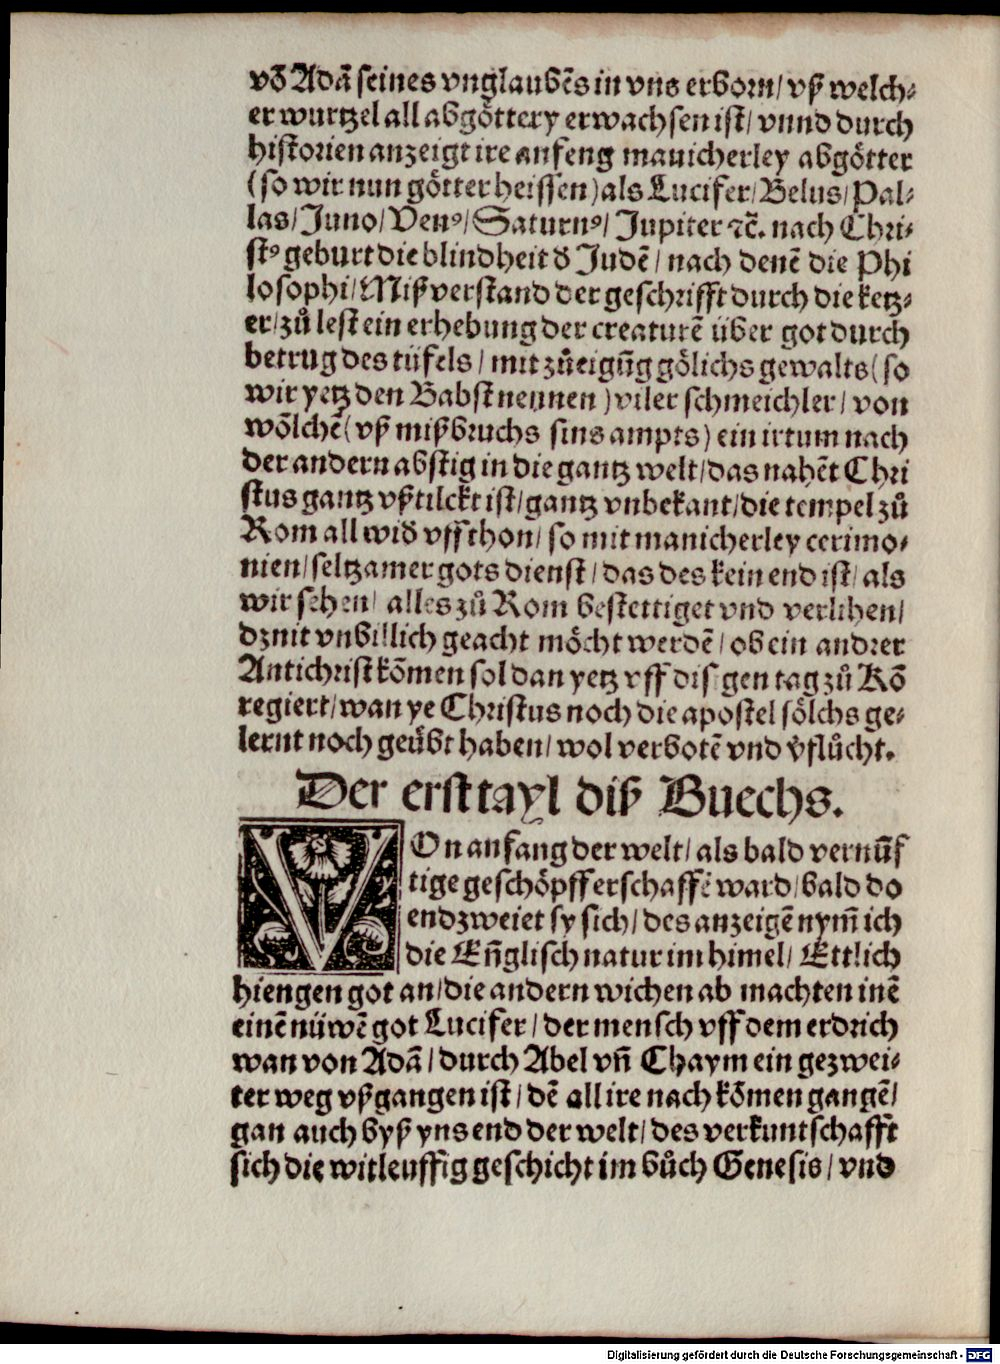 vō Adā ſeines vnglaubēs in vns erborn/ vß welch⸗
er wurtzel all abgöttery erwachſen iſt/ vnnd durch
hiſtorien anzeigt ire anfeng manicherley abgötter
(ſo wir nun götter heiſſen) als Lucifer/ Belus/ Pal⸗
las/ Juno/ Venꝰ/ Saturnꝰ/ Jupiter ꝛc̄. nach Chri⸗
ſtꝰ geburt die blindheit d̄ Judē/ nach denē die Phi
loſophi/ Mißverſtand der geſchrifft durch die ketz⸗
er/ zů leſt ein erhebung der creaturē über got durch
betrug des tüfels/ mit zůeigūg gölichs gewalts (ſo
wir yetz den Babſt nennen) viler ſchmeichler/ von
wōlchē (vß mißbruchs ſins ampts) ein irtum nach
der andern abſtig in die gantz welt/ das nahēt Chri
ſtus gantz vßtilckt iſt/ gantz vnbekant/ die tempel zů
Rom all wid̄ vffthon/ ſo mit manicherley cerimo⸗
nien/ ſeltzamer gots dienſt/ das des kein end iſt/ als
wir ſehen/ alles zů Rom beſtettiget vnd verlihen/
dz nit vnbillich geacht möcht werdē/ ob ein andrer
Antichriſt kōmen ſol dan yetz vff diſigen tag zů Rō
regiert/ wan ye Chriſtus noch die apoſtel ſölchs ge⸗
lernt noch geübt haben/ wol verbotē vnd v̄flůcht.
Der erſt tayl diß Buechs.
VOn anfang der welt/ als bald vernūf
tige geſchöpff erſchaffē ward/ bald do
endzweiet ſy ſich/ des anzeigē nym̄ ich
die Eñgliſch natur im himel/ Ettlich
hiengen got an/ die andern wichen ab machten inē
einē nüwē got Lucifer/ der menſch vff dem erdrich
wan von Adā/ durch Abel vñ Chaym ein gezwei⸗
ter weg vßgangen iſt/ dē all ire nach kōmen gangē/
gan auch byß yns end der welt/ des verkuntſchafft
ſich die witleuffig geſchicht im bůch Geneſis/ vnd
Digitalisierung gefördert durch die Deutsche Forschungsgemeinschaft - DFG